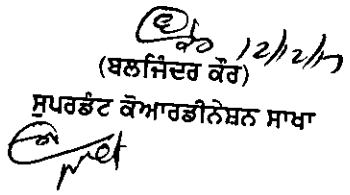 12/12/17
(ਬਲਜਿੰਦਰ ਕੌਰ)
ਸੁਪਰਡੰਟ ਕੋਆਰਡੀਨੇਸ਼ਨ ਸਾਖਾ